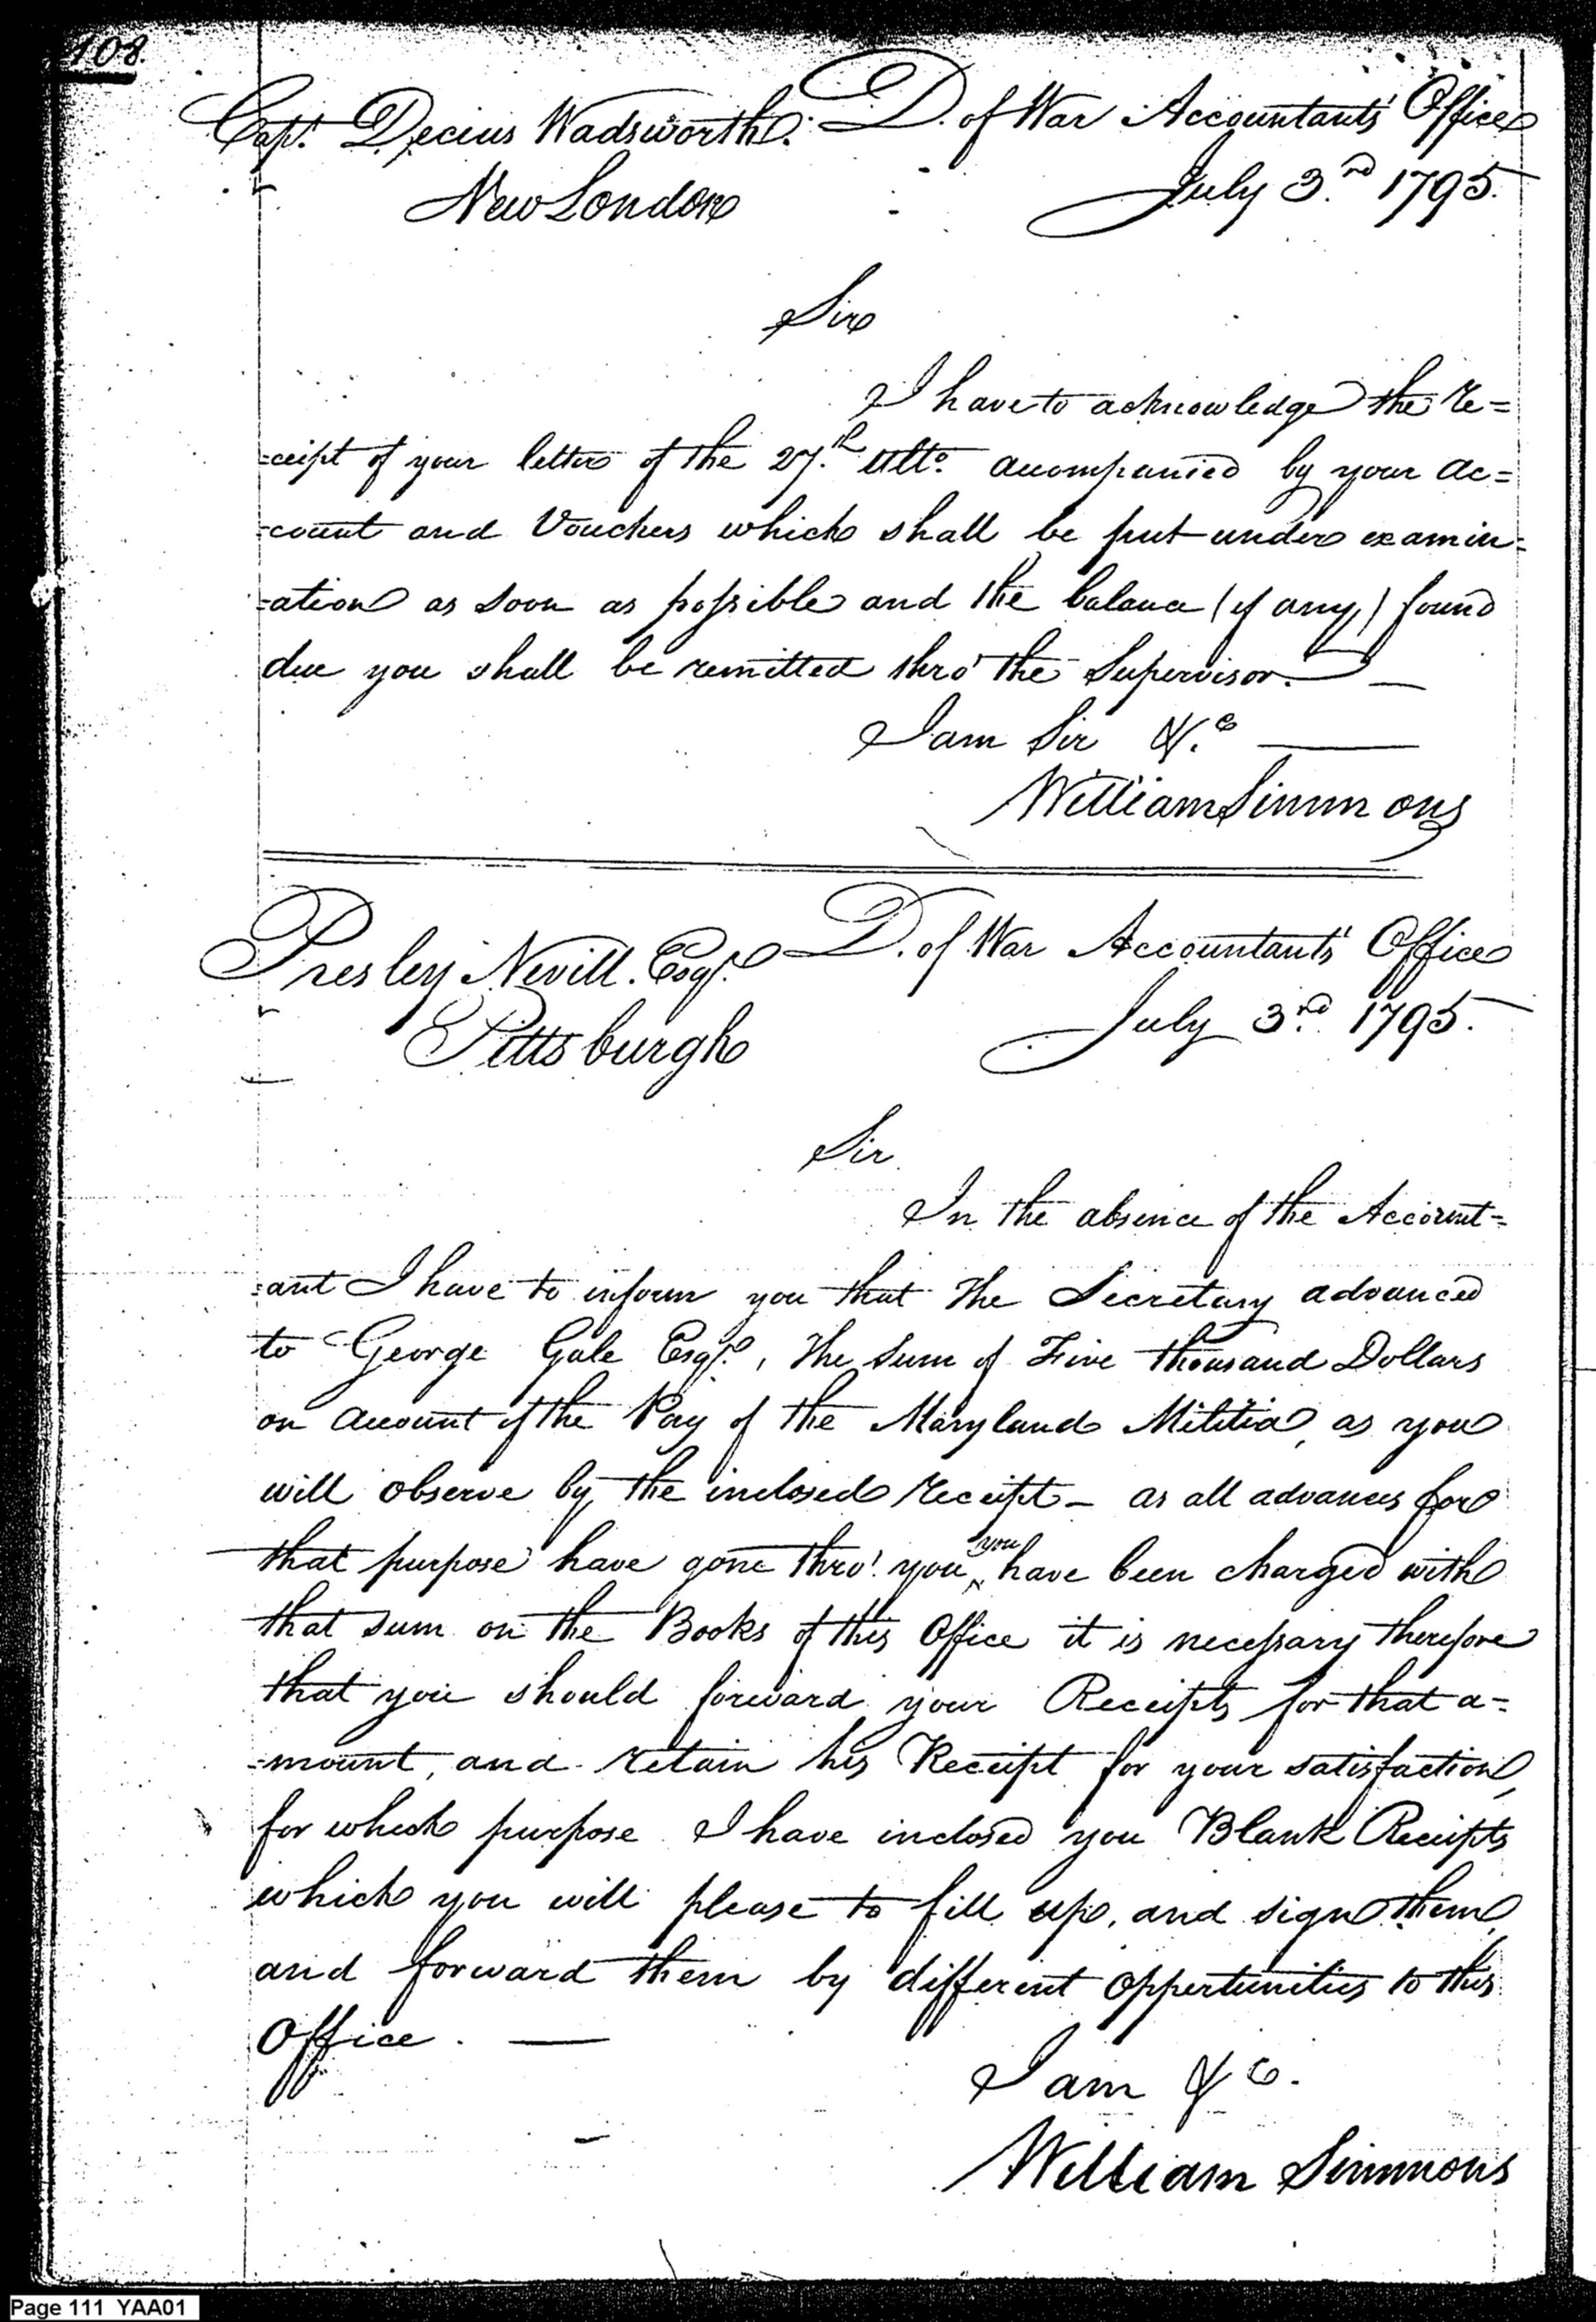 108.
Capt. Decius Wadsworth. D. of War Accountants' Office
New London July 3rd 1795.
Sir
I have to acknowledge the re=
=ceipt of your letter of the 27th Ulto. accompanied by your ac=
=count and Vouchers which shall be put under examin=
=ation as soon as possible and the balance (if any) found
due you shall be remitted thro' the Supervisor. —
I am Sir &c. —
William Simmons
Presley Nevill. Esqr. D. of War Accountants' Office
Pittsburgh July 3rd 1795.
Sir
In the absence of the Account=
=ant I have to inform you that the Secretary advanced
to George Gale Esqr., the Sum of Five thousand Dollars
on account of the Pay of the Maryland Militia, as you
will observe by the inclosed receipt – as all advances for
that purpose have gone thro' you, you have been charged with
that sum on the Books of this Office it is necessary therefore
that you should forward your Receipts for that a=
=mount, and retain his Receipt for your satisfaction,
for which purpose I have inclosed you Blank Receipts
which you will please to fill up, and sign them,
and forward them by different oppertunities to this
Office. —
I am &c.
William Simmons
Page 111 YAA01